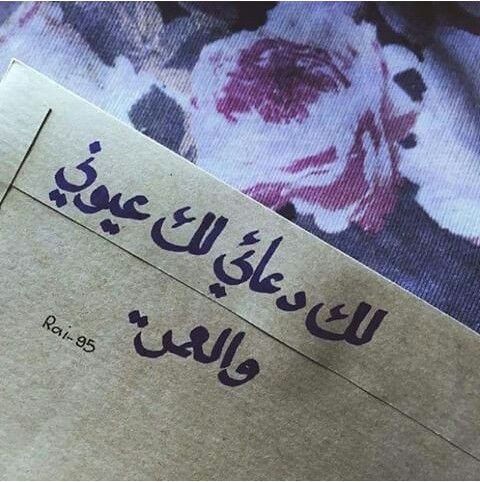 لك دعائي لك عيوني
والعمر
Rai-95